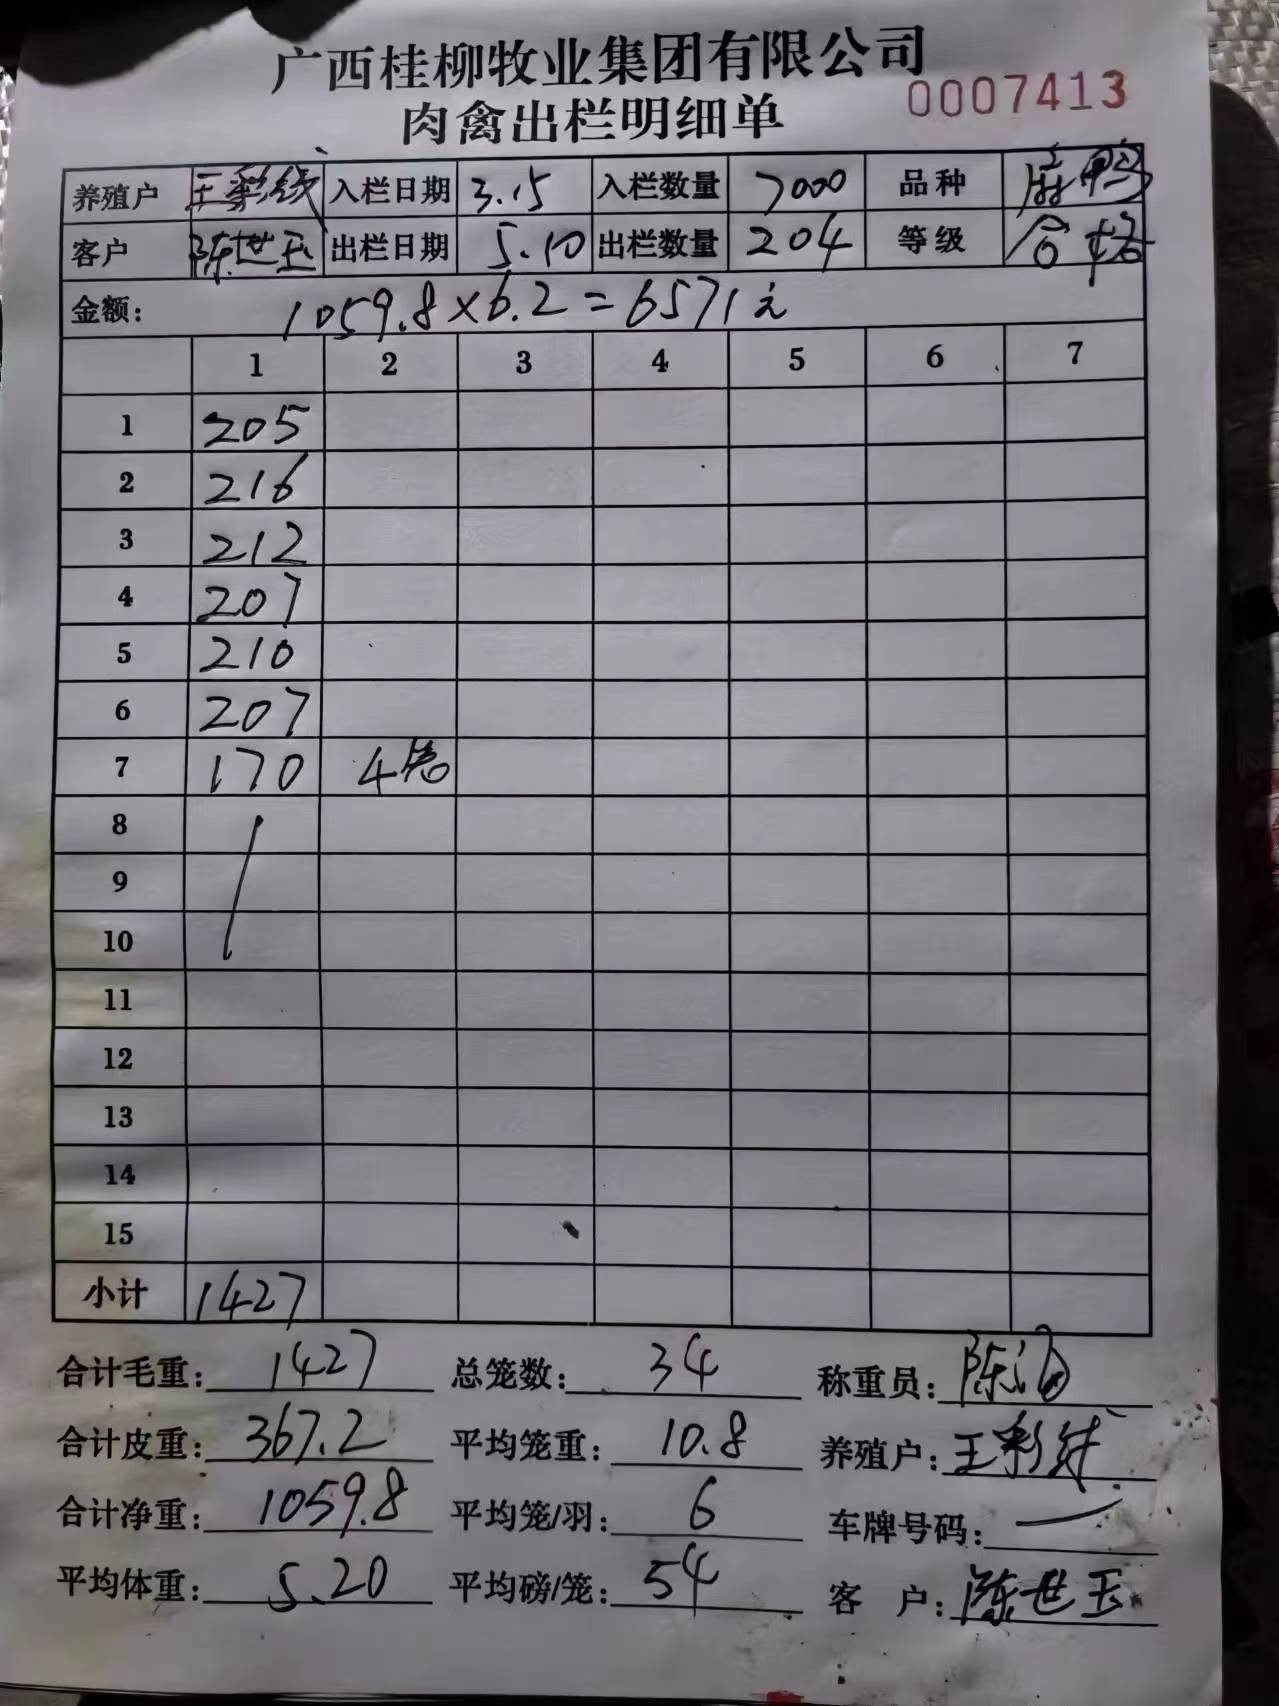 广西桂柳牧业集团有限公司
肉禽出栏明细单
0007413
养殖户 王彩线 入栏日期 3.15 入栏数量 7000 品种 麻鸭
客户 陈世玉 出栏日期 5.10 出栏数量 204 等级 合格
金额: 1059.8×6.2=6571元
1 2 3 4 5 6 7
1 205
2 216
3 212
4 207
5 210
6 207
7 170 4笼
8
9
10
11
12
13
14
15
小计 1427
合计毛重: 1427 总笼数: 34 称重员: 陈
合计皮重: 367.2 平均笼重: 10.8 养殖户: 王彩线
合计净重: 1059.8 平均笼/羽: 6 车牌号码:
平均体重: 5.20 平均磅/笼: 54 客户: 陈世玉